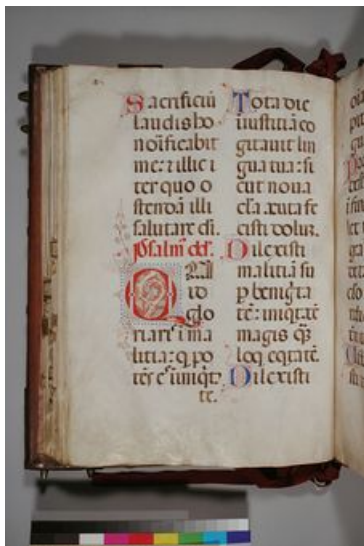 Sacrificiū
laudis ho
noīficabit
me: ⁊ illic i
ter quo o
stendā illi
salutare dī.
Psalm̄
QUI
id
glo
riarē i ma
litia: q̄ po
tēs ē iīniqͥtā
Tota die
iniustitiā co
gitauit lin
gua tua: si
cut noua
cła acuta fe
cisti dolū.
Dilexisti
malitiā su
ꝑ benigͥta
tē: iniqͥtatē
magis qͣ̄
loq̄ eqͥtatē.
Dilexisti
te.